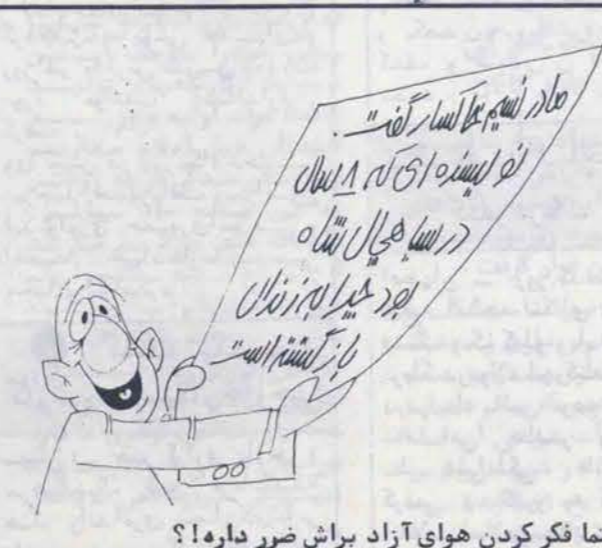 مادر نسیم خاکسار گفت.
نویسنده ای که ۸ سال
در سیاهچال شاه
بود چرا به زندان
بازگشته است
تما فکر کردن هوای آزاد براش ضرر داره!؟